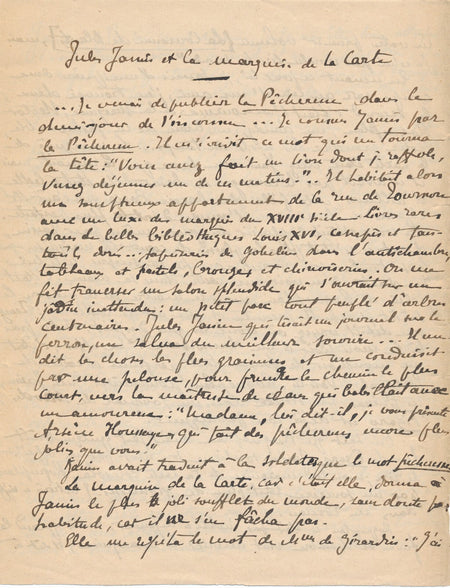 Jules Janin et la marquise de la Carte
... Je venais de publier la Pêcheresse, dans le
demi-jour de l'inconnu ... Je connus Janin par
la Pêcheresse. Il m'écrivit ce mot qui me tourna
la tête : "Vous avez fait un livre dont je raffole,
venez déjeuner un de ces matins." .. Il habitait alors
un somptueux appartement de la rue de Tournon
avec un luxe de marquis du XVIIIe siècle. Livres rares
dans de belles bibliothèques Louis XVI, canapés et fau-
teuils dorés.. tapisseries de Gobelins dans l'antichambre,
tableaux et pastels, Greuzes et chinoiseries. On me
fit traverser un salon splendide qui s'ouvrait sur un
jardin inattendu : un petit parc tout peuplé d'arbres
centenaires. Jules Janin qui lisait un journal sur le
perron, me salua du meilleur sourire ... Il me
dit les choses les plus gracieuses et me conduisit
par une pelouse, pour prendre le chemin le plus
court, vers la maîtresse de céans qui
un amoureux : "Madame, lui dit-il, je vous présente
Arsène Houssaye, qui fait des pêcheresses encore plus
jolies que vous."
Janin avait traduit à la soldatesque le mot pêcheresse
La marquise de la Carte, car c'était elle, donna à
Janin le plus joli soufflet du monde, sans doute par
habitude, car il ne s'en fâcha pas.
Elle me répéta le mot de Mme de Girardin : "J'ai